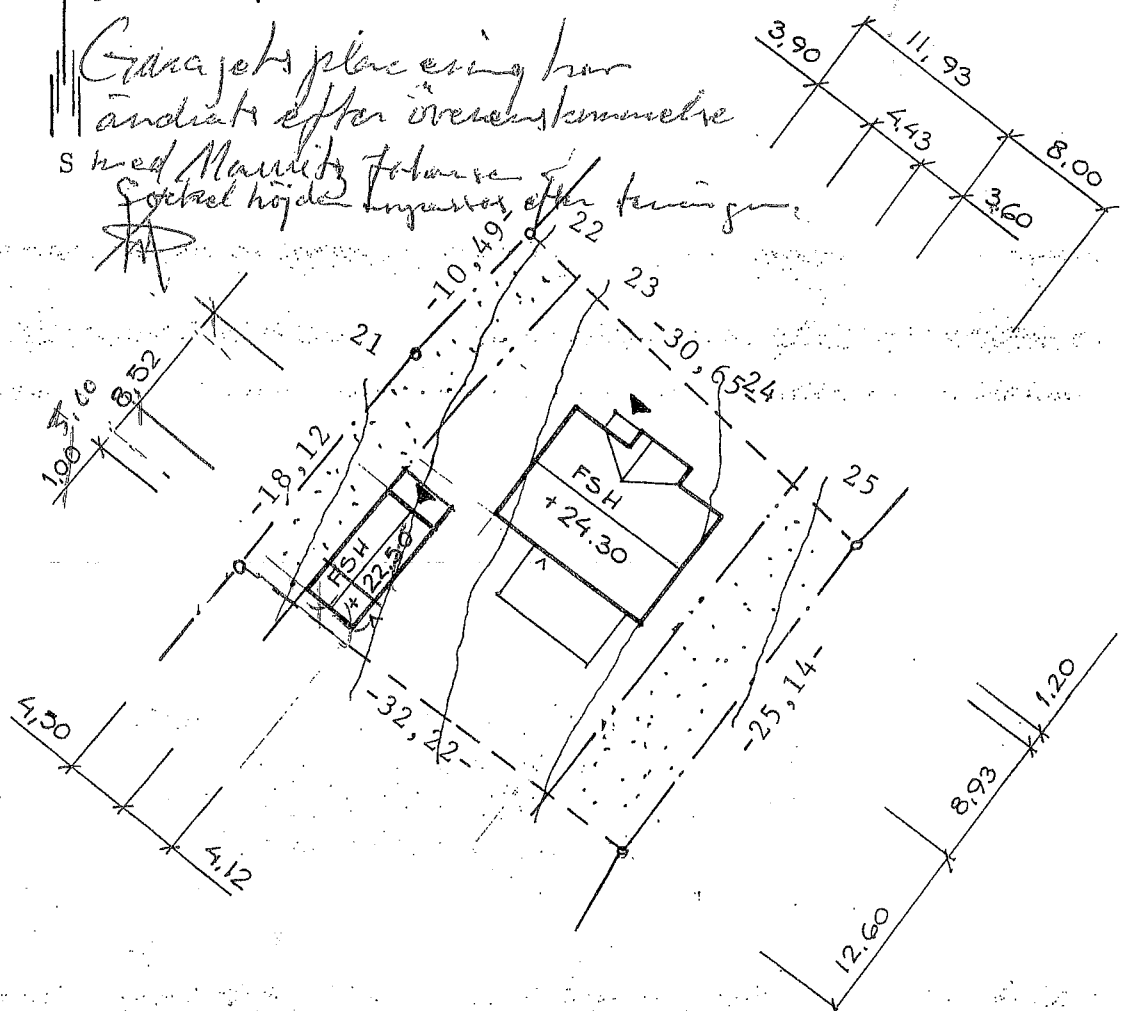 Garagets placering har
ändrats efter överenskommelse
S med Maurits
Sockelhöjden anpassas efter
3,90
11,93
4,43
8,00
3,60
-10,49-
22
23
-30,65-
24
21
8,52
1,00
-18,12
25
FSH
+24.30
FSH
+22.50
-32,22-
-25,14-
4,50
4,12
1.20
8,93
12.60